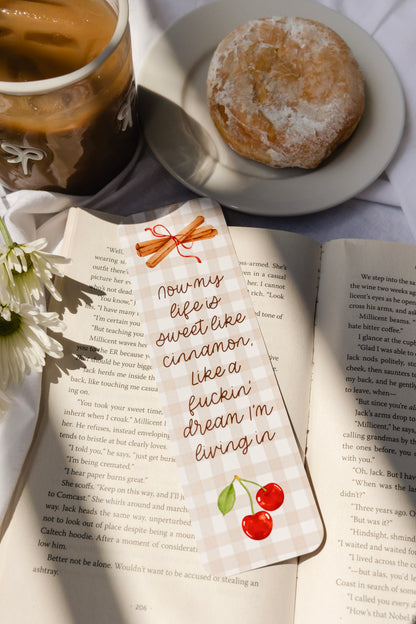 Now my
life is
sweet like
cinnamon,
Like a
fuckin'
dream I'm
living in
wearing
outfit there
"It's b
has won't do
"You know,"
"I'm certain you
"But teaching you
Millicent waves
the ER because
should be your bigges
Jack herds me inside th
back, like touching me casu
ing on.
"You took your sweet time.
inherit when I croak." Millicent l
her. He refuses, instead envelopin
tends to bristle at but clearly loves.
"I told you," he says, "just get burie
"I'm being cremated."
"I hear paper burns great."
She scoffs. "Keep on this way, and I'll p
to Comcast." She whirls around and march
Jack heads the same way, unperturbed
not to look out of place despite being a moun
Caltech hoodie. After a moment of considerati
low him.
Better not be alone. Wouldn't want to be accused of stealing an
ashtray.
206
oss-armed. She's
en in a casual
r rich," I
d tone of
We step into the sa
the wine two weeks ag
licent's eyes as he open
cross his arms, and ask
Millicent beams. "
hate bitter coffee."
I glance at the cup
"Glad I was able to
Jack nods politely, ste
cheek, then saunters to
my back, and he gentl
to leave, when—
"But since you're a
Jack's arms drop
"Millicent," he says,
calling grandmas by th
the ones before, you d
with you?"
"Oh, Jack. But I hav
"When was the la
didn't?"
"Three years ago. O
"But was it?"
"Hindsight, shmind
"I waited and waited fo
I lived across the co
"—but alas, you'd le
Coast in search of some
"I called you every d
"How's that Nobel P